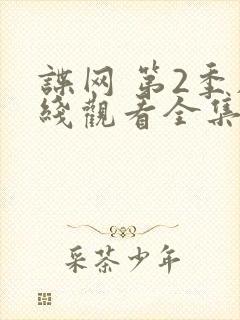 諜网 第2季
綫觀看全集
采茶少年